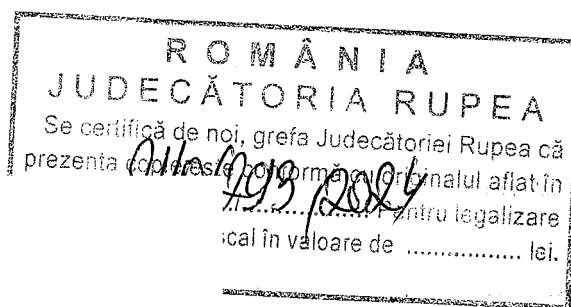 ROMÂNIA
JUDECĂTORIA RUPEA
Se certifică de noi, grefa Judecătoriei Rupea că
prezenta copie este conformă cu originalul aflat în
/2024 ................ Pentru legalizare
cal în valoare de ................ lei.